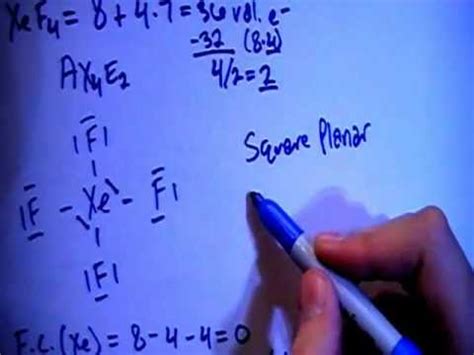 XeF₄ = 8 + 4·7 = 36 val. e⁻
-32 (8·4)
4/2 = 2
AX₄E₂
|F|
Square Planar
|F - Xe - F|
|F|
F.C.(Xe) = 8 - 4 - 4 = 0